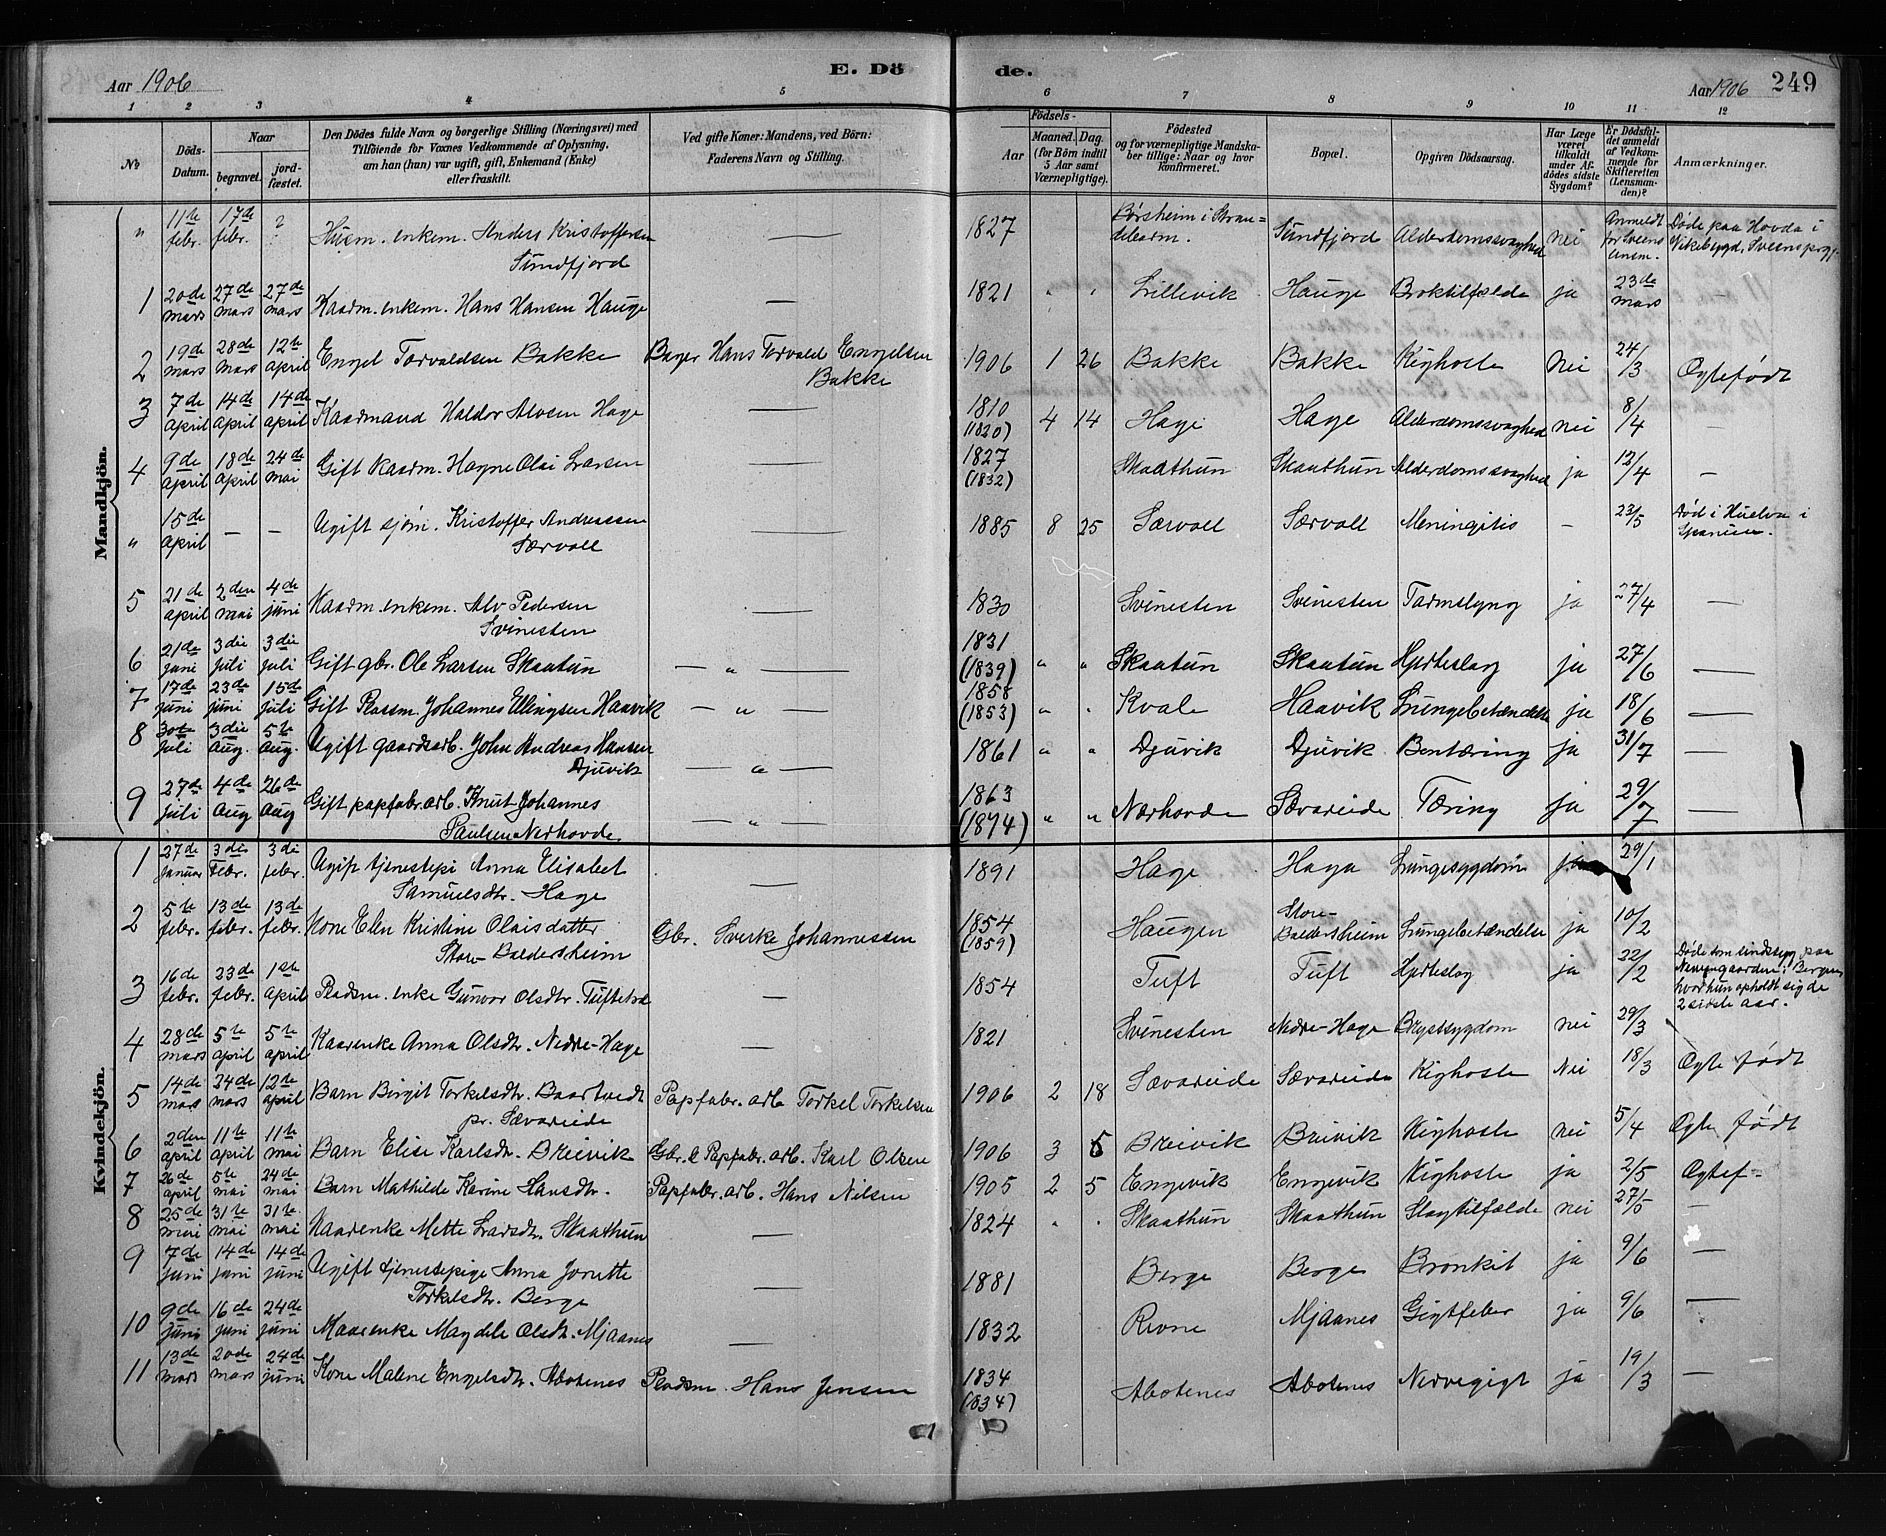 Aar 1906
E. Dö
de.
Aar 1906 249
1 2 3 4 5 6 7 8 9 10 11 12
No
Döds-Datum.
Naar
begravet.
jord-fæstet.
Den Dödes fulde Navn og borgerlige Stilling (Næringsvei) med
Tilföiende for Voxnes Vedkommende af Oplysning,
om han (hun) var ugift, gift, Enkemand (Enke)
eller fraskilt.
Ved gifte Koner: Mandens, ved Börn:
Faderens Navn og Stilling.
Födsels-
Aar
Maaned. Dag.
(for Börn indtil
5 Aar samt
Værnepligtige).
Födested
og for værnepligtige Mandska-
ber tillige: Naar og hvor
konfirmeret.
Bopæl.
Opgiven Dödsaarsag.
Har Læge
været
tilkaldt
under Af-
dödes sidste
Sygdom?
Er Dödsfal-
det anmeldt
af Vedkom-
mende for
Skifteretten
(Lensman-
den)?
Anmærkninger.
Mandkjön.
" 11te febr. 17de febr. ? Husm. enkem. Anders Kristoffersen Sundfjord — 1827 Børsheim i Strandebarm. Sundfjord Alderdomssvaghed nei Anmeldt for Sveens lensm. Døde paa Hovda i Vikebygd, Sveens prgj.
1 20de mars 27de mars 27de mars Kaarm. enkem. Hans Hansen Hauge — 1821 " " Lillevik Hauge Broktilfælde ja 23de mars —
2 19de mars 28de mars 12te april Engel Torvaldsen Bakke Bager Hans Torvald Engelsen Bakke 1906 1 26 Bakke Bakke Kighoste nei 24/3 Ægtefødt
3 7de april 14de april 14de april Kaarmand Haldor Alvsen Hage — 1810 (1820) 4 14 Hage Hage Alderdomssvaghed nei 8/4 —
4 9de april 18de april 24de mai Gift kaarm. Hagne Olai Larsen — 1827 (1832) Skaathun Skaathun Alderdomssvaghed ja 12/4 —
" 15de april — — Ugift sjøm. Kristoffer Andreassen Særvoll — 1885 8 25 Særvoll Særvoll Meningitis — 23/5 Død i Huelva i Spanien.
5 21de april 2den mai 4de juni Kaarm. enkem. Alv Pedersen Svinesten — 1830 Svinesten Svinesten Tarmslyng ja 27/4 —
6 21de juni 3die juli 3die juli Gift gbr. Ole Larsen Skaatun — " — 1831 (1839) " " Skaatun Skaatun Hjerteslag ja 27/6 —
7 17de juni 23de juni 15de juli Gift Plassm Johannes Ellingsen Haavik — " — 1858 (1853) " " Kvale Haavik Lungebetændelse ja 18/6 —
8 30te juli 3die Aug. 5te Aug. Ugift gaardsarb. John Andreas Hansen Djuvik — " — 1861 " " Djuvik Djuvik Bentæring ja 31/7 —
9 27de juli 4de Aug 26de Aug Gift papfabr.arb. Knut Johannes Paulsen Nerhovde — " — 1863 (1874) " " Nærhovde Sævareide Tæring ja 29/7 —
Kvindekjön.
1 27de januar 3die Febr. 3die febr. Ugift tjenestepi Anna Elisabet Samuelsdtr. Hage — 1891 Hage Haga Lungesygdom ja 29/1
2 5te febr. 13de febr. 13de febr. Kone Elen Kristine Olaisdatter Store-Baldersheim Gbr. Sverke Johannessen 1854 (1859) Haugen Store-Baldersheim Lungebetændelse ja 10/2
3 16de febr. 23de febr. 1ste april Pladsm. enke Gunvor Olsdtr. Tufteteræ — 1854 Tuft Tuft Hjerteslag ja 22/2 Døde som sindssyg paa Neevengaarden i Bergen, hvor hun opholdt sig de 2 sidste aar.
4 28de mars 5te april 5te april Kaarenke Anna Olsdtr. Nedre-Hage — 1821 Svinesten Nedre-Hage Brystsygdom nei 29/3
5 14de mars 24de mars 12te april Barn Birgit Torkelsdtr. Baartvedt pr. Sævareide Papfabr. arb Torkel Torkelsen 1906 2 18 Sævareide Sævareide Kighoste Nei 18/3 Ægte født
6 2den april 11te april 11te mai Barn Elise Karlsdtr. Breivik Gbr. & Papfabr. arb. Karl Olsen 1906 3 5 Breivik Breivik Kighoste nei 5/4 Ægte født
7 26de april 5te mai 24de mai Barn Mathilde Karine Hansdtr. Papfabr. arb. Hans Nilsen 1905 2 5 Engevik Engevik Kighoste ja 2/5 Ægtef-
8 25de mai 31te mai 31te mai Kaarenke Mette Larsdtr. Skaathun — 1824 " " Skaathun Skaathun Slagtilfælde nei 27/5 —
9 7de juni 14de juni 14de juni Ugift tjenestepige Anna Jorette Torkelsdtr. Berge — 1881 Berge Berge Bronkit ja 9/6 —
10 9de juni 16de juni 24de juni Kaarenke Magdele Olsdtr. Mjaanes — 1832 Revne Mjaanes Gigtfeber ja 9/6 —
11 13de mars 20de mars 24de juni Kone Malene Engelsdtr. Abotenes Pladsm. Hans Jensen 1834 (1834) Abotenes Abotenes Nervegigt ja 19/3 —